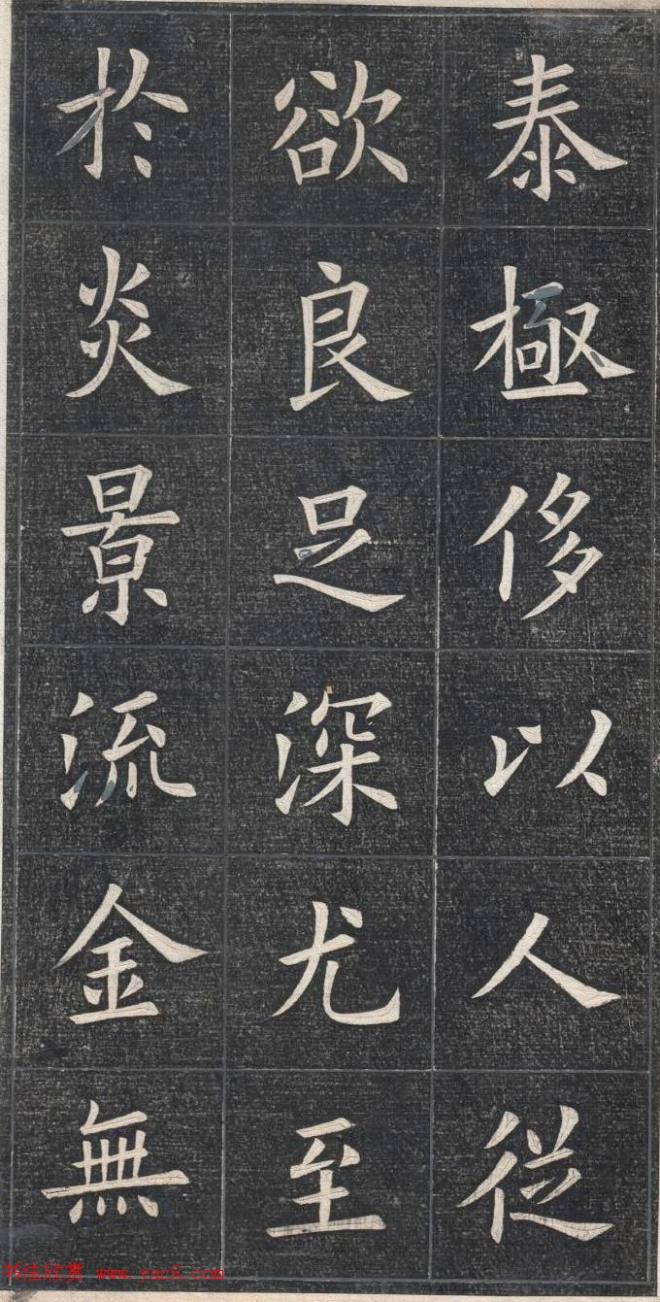 泰極侈以人從
欲良足深尤至
於炎景流金無
书法欣赏 www.yac8.com